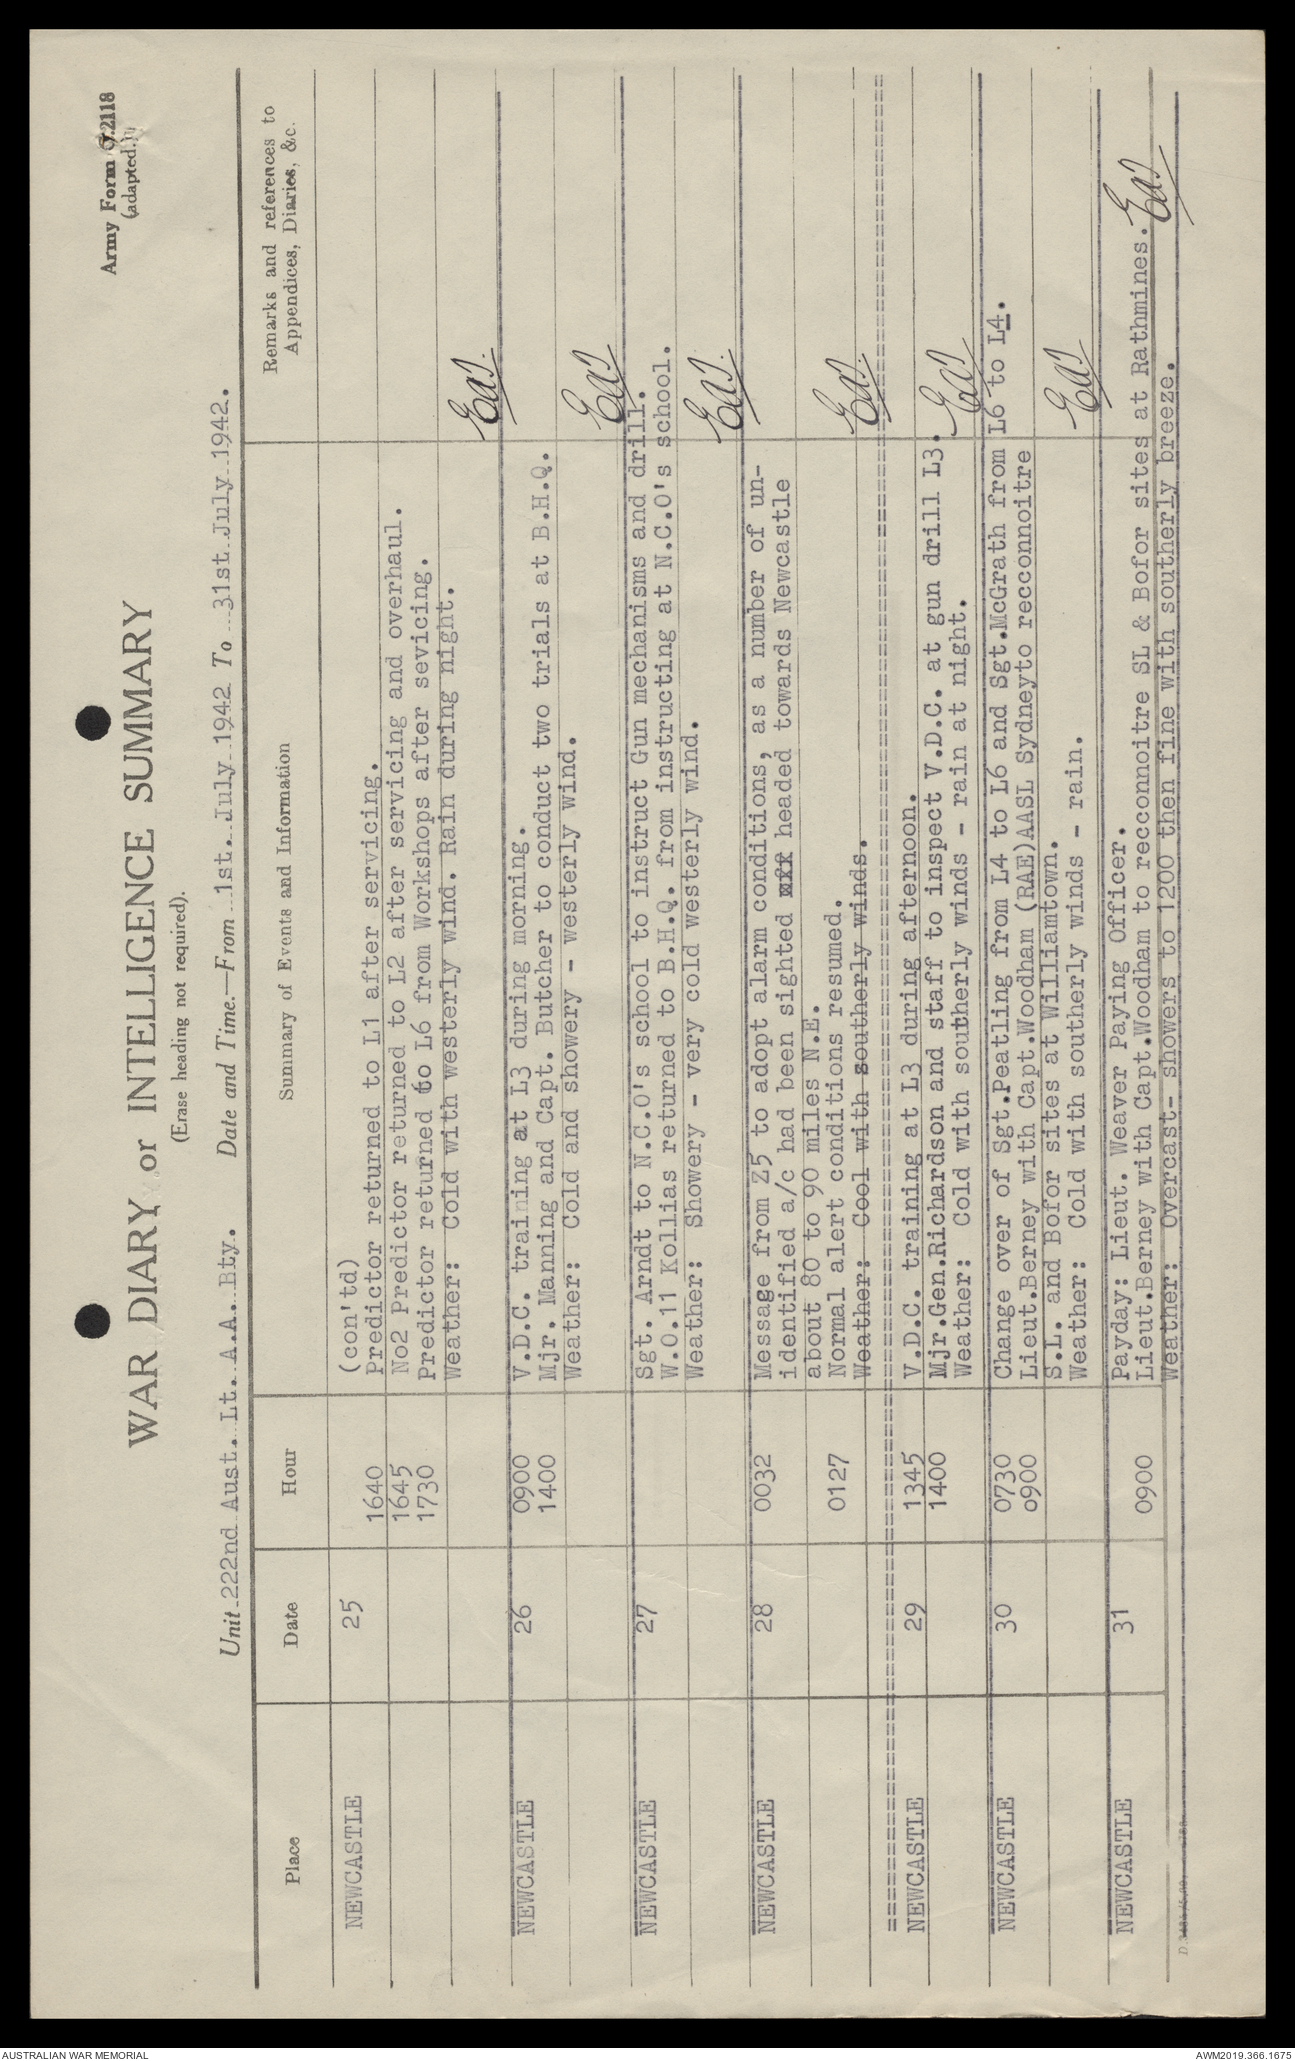 Army Form C.2118
(adapted.)
WAR DIARY or INTELLIGENCE SUMMARY
(Erase heading not required).
Unit 222nd Aust. Lt. A.A. Bty. Date and Time.—From 1st. July 1942 To 31st July 1942.
Place Date Hour Summary of Events and Information Remarks and references to
Appendices, Diaries, &c.
NEWCASTLE 25 (con'td)
1640 Predictor returned to L1 after servicing.
1645 No2 Predictor returned to L2 after servicing and overhaul.
1730 Predictor returned to L6 from Workshops after sevicing.
Weather: Cold with westerly wind. Rain during night.
NEWCASTLE 26 0900 V.D.C. training at L3 during morning.
1400 Mjr. Manning and Capt. Butcher to conduct two trials at B.H.Q.
Weather: Cold and showery - westerly wind.
NEWCASTLE 27 Sgt. Arndt to N.C.O's school to instruct Gun mechanisms and drill.
W.O.11 Kollias returned to B.H.Q. from instructing at N.C.O's school.
Weather: Showery - very cold westerly wind.
NEWCASTLE 28 0032 Message from Z5 to adopt alarm conditions, as a number of un-
identified a/c had been sighted off headed towards Newcastle
about 80 to 90 miles N.E.
0127 Normal alert conditions resumed.
Weather: Cool with southerly winds.
NEWCASTLE 29 1345 V.D.C. training at L3 during afternoon.
1400 Mjr.Gen.Richardson and staff to inspect V.D.C. at gun drill L3.
Weather: Cold with southerly winds - rain at night.
NEWCASTLE 30 0730 Change over of Sgt.Peatling from L4 to L6 and Sgt.McGrath from L6 to L4.
0900 Lieut.Berney with Capt.Woodham (RAE)AASL Sydneyto recconnoitre
S.L. and Bofor sites at Williamtown.
Weather: Cold with southerly winds - rain.
NEWCASTLE 31 Payday: Lieut. Weaver Paying Officer.
0900 Lieut.Berney with Capt.Woodham to recconnoitre SL & Bofor sites at Rathmines.
Weather: Overcast- showers to 1200 then fine with southerly breeze.
AUSTRALIAN WAR MEMORIAL AWM2019.366.1675